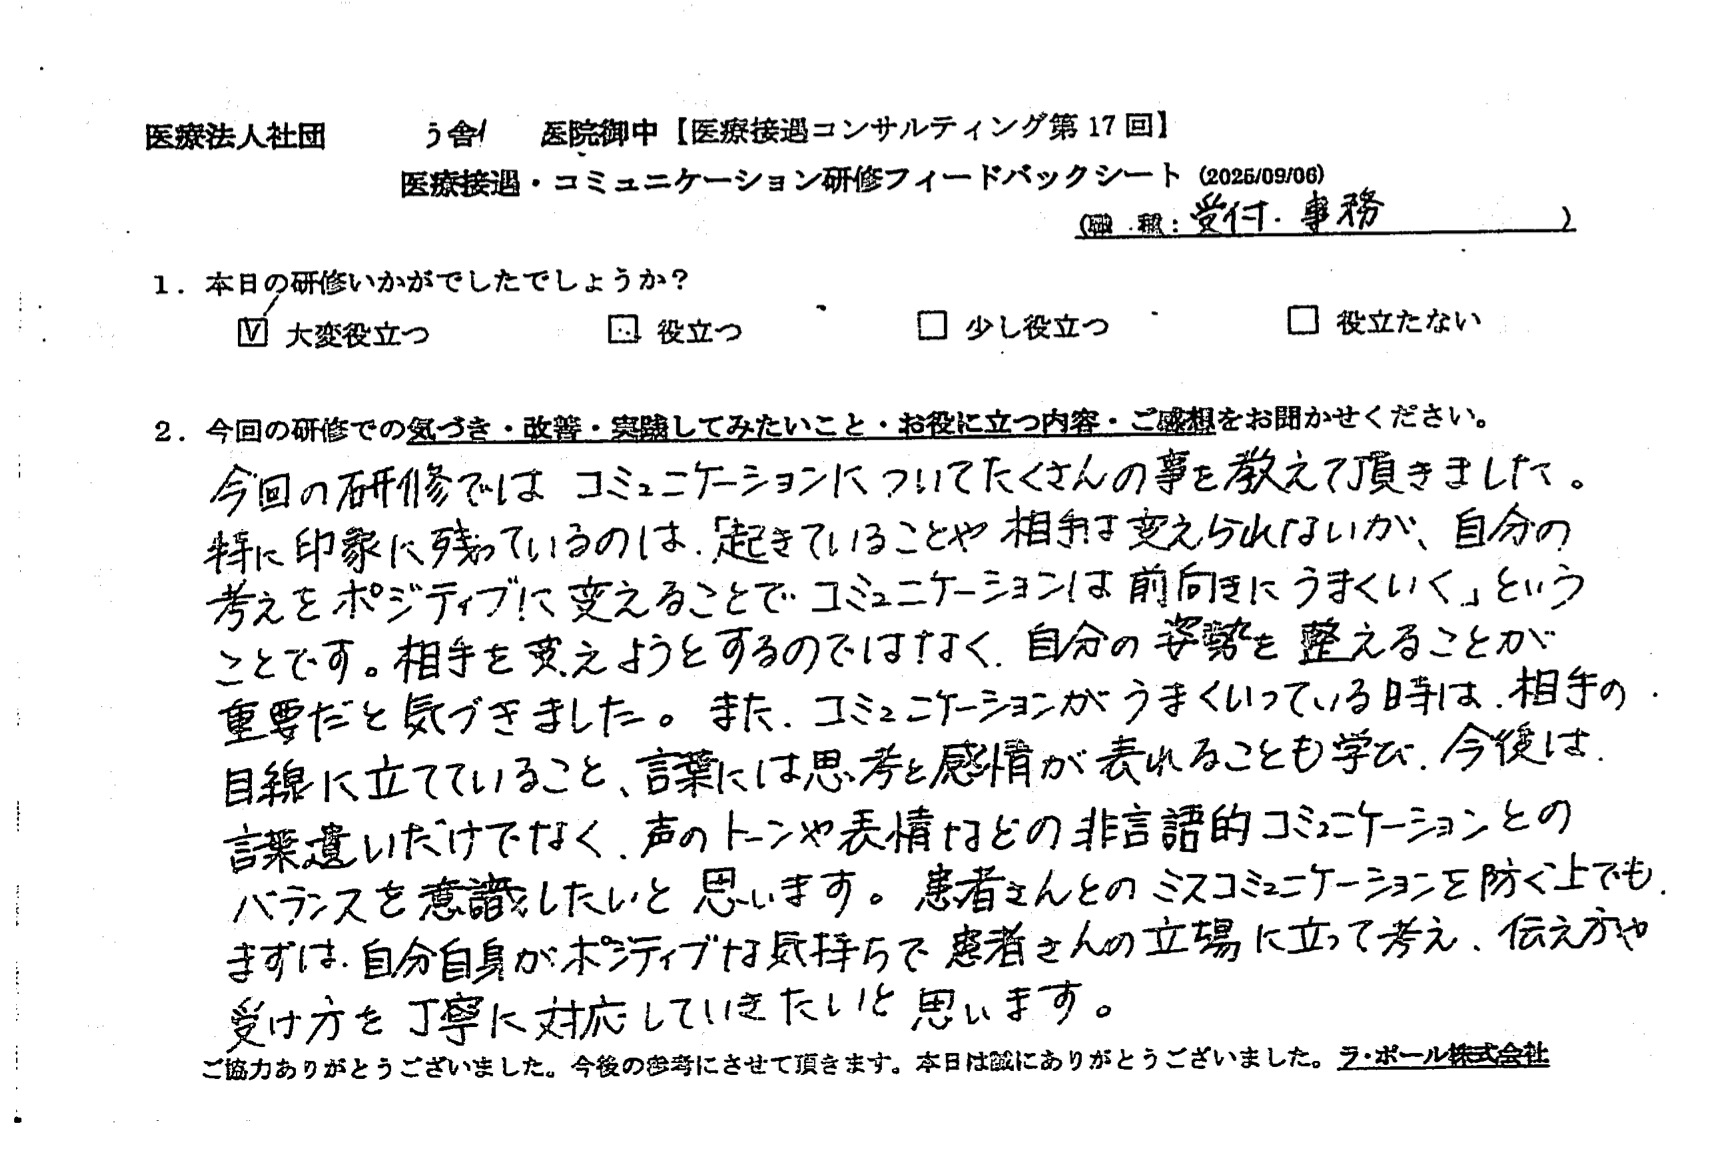 医療法人社団 う舎 医院御中【医療接遇コンサルティング第17回】
医療接遇・コミュニケーション研修フィードバックシート (2025/09/06)
(職 種: 受付・事務 )
1. 本日の研修いかがでしたでしょうか?
☑ 大変役立つ □ 役立つ □ 少し役立つ □ 役立たない
2. 今回の研修での気づき・改善・実践してみたいこと・お役に立つ内容・ご感想をお聞かせください。
今回の研修では コミュニケーションについてたくさんの事を教えて頂きました。
特に印象に残っているのは、「起きていることや相手は変えられないが、自分の
考えをポジティブに変えることでコミュニケーションは前向きにうまくいく」という
ことです。相手を変えようとするのではなく、自分の姿勢を整えることが
重要だと気づきました。また、コミュニケーションがうまくいっている時は、相手の
目線に立てていること、言葉には思考と感情が表れることも学び、今後は、
言葉遣いだけでなく、声のトーンや表情などの非言語的コミュニケーションとの
バランスを意識したいと思います。患者さんとのミスコミュニケーションを防ぐ上でも、
まずは、自分自身がポジティブな気持ちで患者さんの立場に立って考え、伝え方や
受け方を丁寧に対応していきたいと思います。
ご協力ありがとうございました。今後の参考にさせて頂きます。本日は誠にありがとうございました。ラ・ポール株式会社